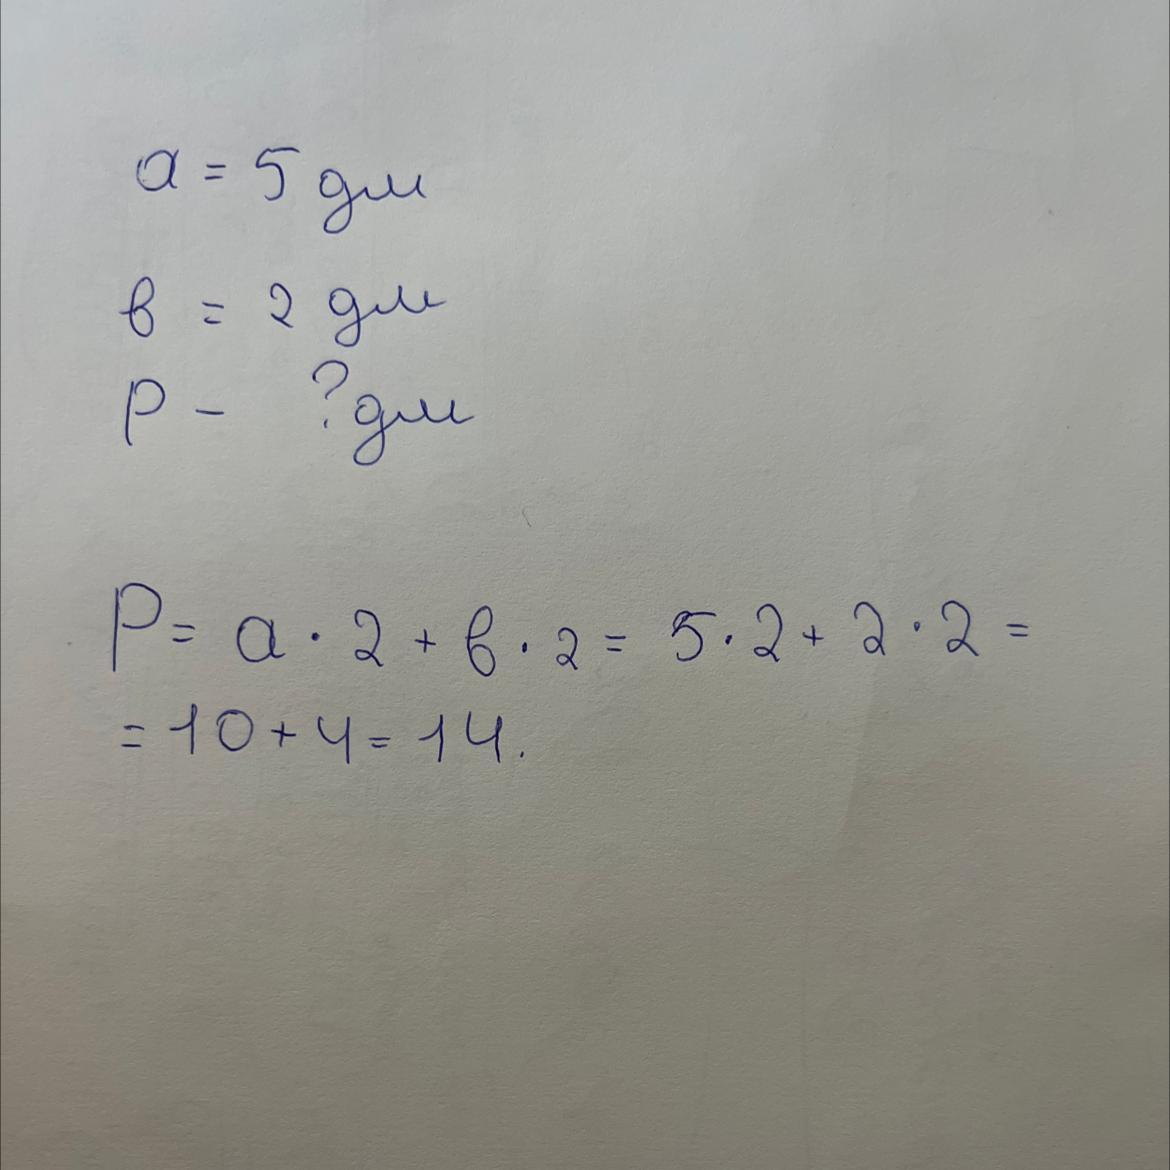 a = 5 дм
в = 2 дм
P - ? дм
P = a · 2 + в · 2 = 5 · 2 + 2 · 2 =
= 10 + 4 = 14.